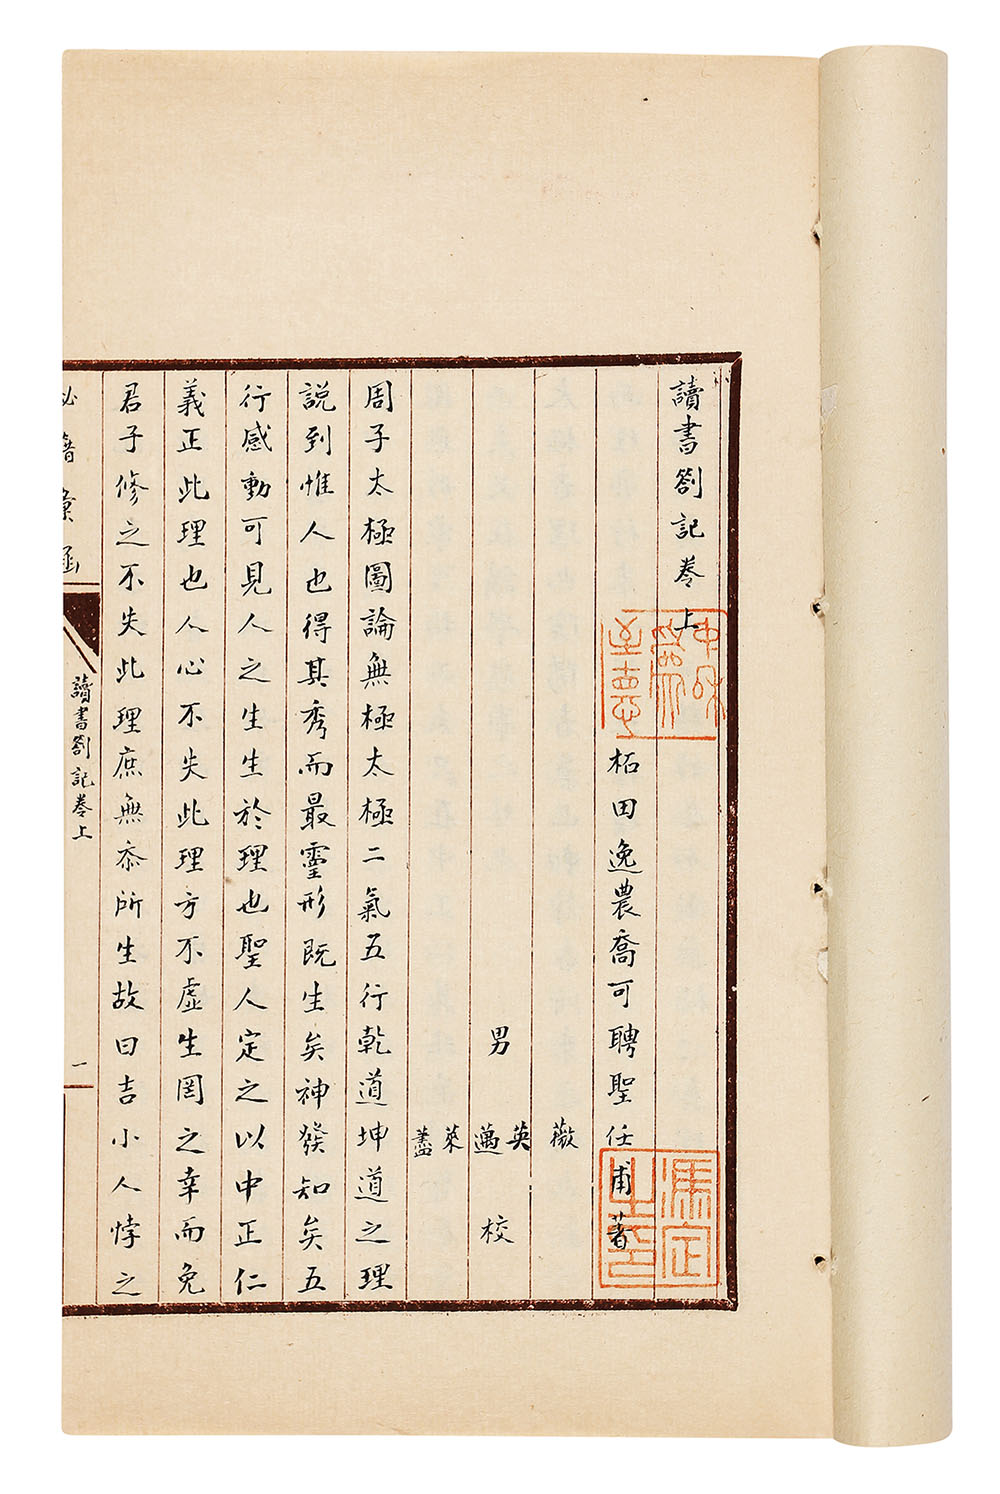 讀書劄記卷上
柘田逸農喬可聘聖任甫著
薇
男 英 邁 校
萊 藎
周子太極圖論無極太極二氣五行乾道坤道之理
説到惟人也得其秀而最靈形既生矣神發知矣五
行感動可見人之生生於理也聖人定之以中正仁
義正此理也人心不失此理方不虛生罔之幸而免
君子修之不失此理庶無忝所生故曰吉小人悖之
祕籍彙函
讀書劄記卷上
一
馮定之印